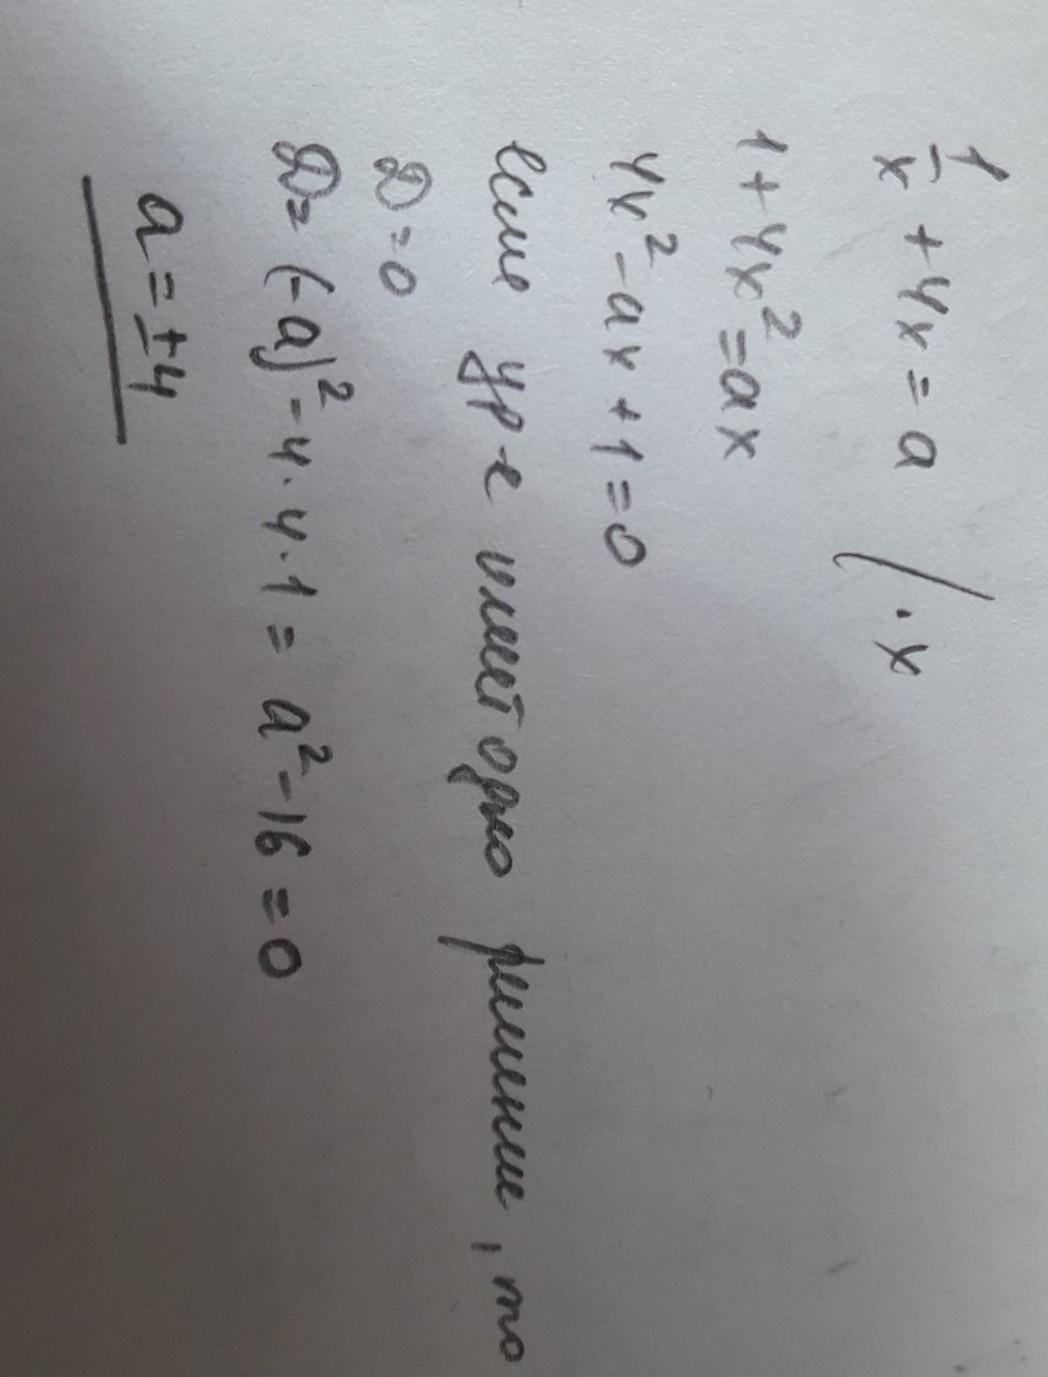 1/x + 4x = a / · x
1 + 4x² = ax
4x² - ax + 1 = 0
если ур-е имеет одно решение, то
D = 0
D = (-a)² - 4 · 4 · 1 = a² - 16 = 0
a = ±4